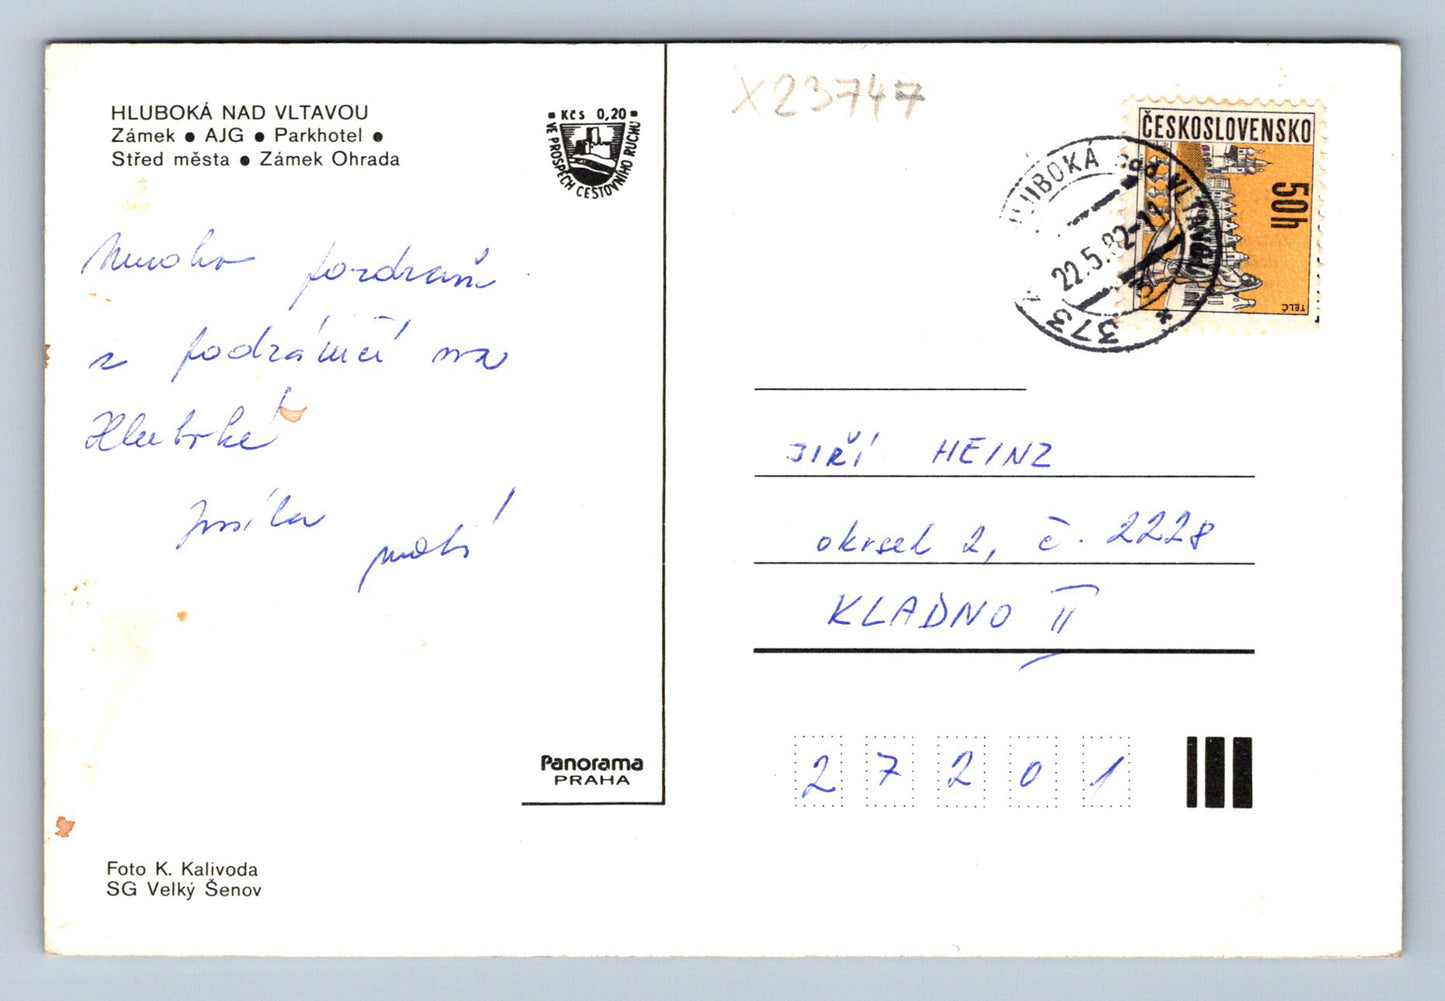 HLUBOKÁ NAD VLTAVOU
Zámek ● AJG ● Parkhotel ●
Střed města ● Zámek Ohrada
Kčs 0,20
VE PROSPĚCH CESTOVNÍHO RUCHU
Mnoho pozdravů
z
na
Hluboké
X23747
ČESKOSLOVENSKO
50h
TELČ
HLUBOKÁ nad VLTAVOU
22.5.82-11
373
JIŘÍ HEINZ
okrsek 2, č. 2228
KLADNO II
27201
Panorama
PRAHA
Foto K. Kalivoda
SG Velký Šenov